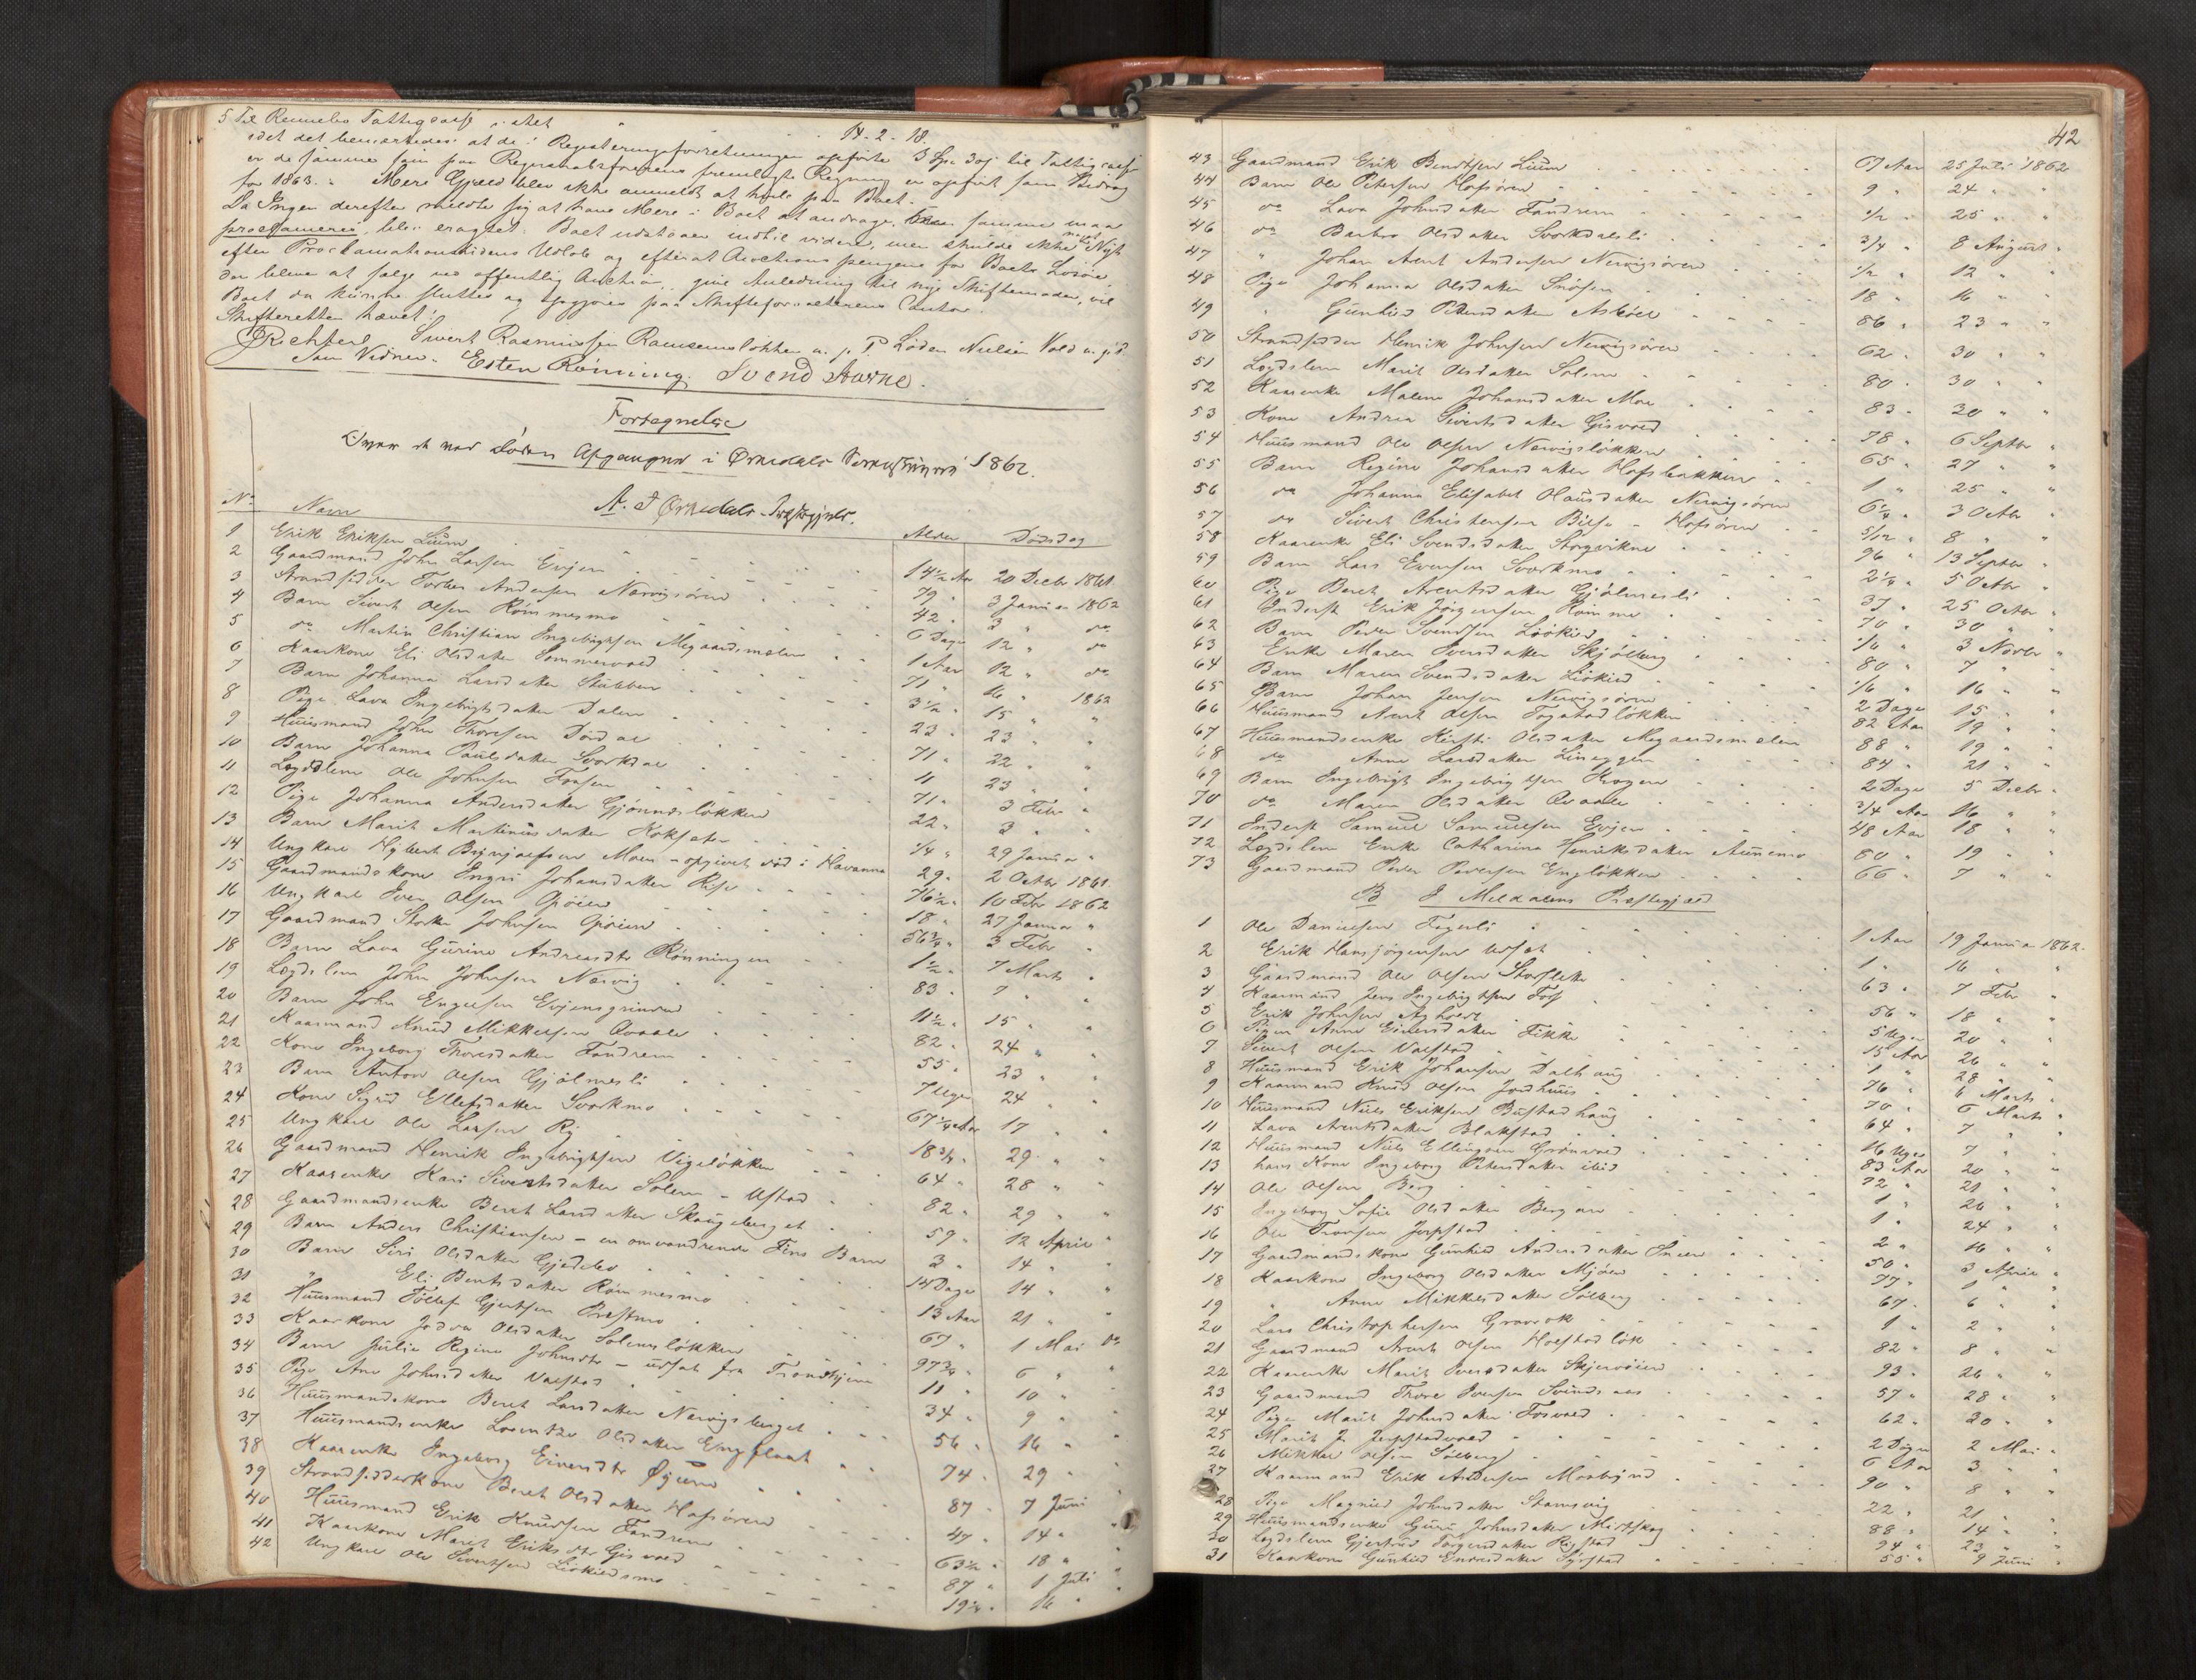 5 Til Rennebo Fattigcasse i alt 14-2-18.
idet det bemærkedes at de i Registeringsforretningen opførte 3 Spd 30 s til Fattigcasse
er de samme som paa Regnskabsførerens fremlagte Regning er opført som Bidrag
for 1863. Mere Gjæld blev ikke anmeldt at hvile paa Boet.
Da Ingen derefter meldte sig at have Mere i Boet at andrage, samme maa
proclameres, blev eragtet: Boet udstaaer indtil videre, men skulde ikke noget Nyt
efter Proclamationstidens Udløb og efterat Auctions pengene for Boets Løsøre,
der bliver at sælge ved offentlig Auction, give Anledning til nye Skiftemøder, vil
Boet da kunne sluttes og opgjøres paa Skifteforvalterens Contor.
Skifteretten hævet.
Richter Sivert Rasmussen Ramsemsløkken m. p. P. Løden Nielsen Vold m. p. P.
Som Vidner: Esten Rønning. Svend Havne.
Fortegnelse
Over de ved Døden Afgangne i Ørkedals 1862.
A. I Ørkedals Præstegjeld.
No Navn Alder Dødsdag
1 Erik Eriksen Lium 14 1/2 Aar 20 Decbr 1861
2 Gaardmand John Larsen Evjen 79 " 3 Januar 1862
3 Strandsidder Torber Andersen Nervigsøren 42 " 3 " do
4 Barn Sivert Olsen Rømmesmo 6 Dage 12 " do
5 do Martin Christian Ingebrigtsen Megaardsmelen 1 Aar 12 " do
6 Kaarkone Eli Olsdatter Sommervold 71 " 16 " 1862
7 Barn Johanna Larsdatter Stubben 3 1/2 " 15 " "
8 Pige Lava Ingebrigtsdatter Dalen 23 " 23 " "
9 Huusmand John Thoresen Dørdal 71 " 22 " "
10 Barn Johanna Paulsdatter Svorkdal 11 " 23 " "
11 Lægdslem Ole Johnsen Fossen 71 " 3 Febr "
12 Pige Johanna Andersdatter Gjønnesløkken 22 " 3 " "
13 Barn Marit Martinusdatter Kokseter 1/4 " 29 Januar "
14 Ungkarl Hybert Brynjulfsen Moen - opgivet død i Havanna 29 " 2 Octbr 1861
15 Gaardmandskone Ingri Johansdatter Risse 76 1/2 " 10 Febr 1862
16 Ungkarl Iver Olsen Opøien 18 " 27 Januar "
17 Gaardmand Sterke Johnsen Opøien 56 3/4 " 3 Febr "
18 Barn Lava Gurine Andreasdtr Rønningen 1 1/2 " 7 Marts "
19 Lægdslem John Johnsen Nervig 83 " 7 " "
20 Barn John Engelsen Evjensgrinden 11 1/2 " 15 " "
21 Kaarmand Knud Mikkelsen Qvaale 82 " 24 " "
22 Kone Ingeborg Thoresdatter Fandrem 55 " 23 " "
23 Barn Anton Olsen Gjølmesli 7 Uger 24 " "
24 Kone Sigrid Ellefsdatter Svorkmo 67 1/4 Aar 17 " "
25 Ungkarl Ole Larsen Ry 18 3/4 " 29 " "
26 Gaardmand Henrik Ingebrigtsen Vigeløkken 64 " 28 " "
27 Kaarenke Kari Sivertsdatter Solem - Ustad 82 " 29 " "
28 Gaardmandsenke Beret Larsdatter Skougeberget 59 " 12 April "
29 Barn Anders Christiansen - en omvandrende Fins Barn 3 " 14 " "
30 Barn Siri Olsdatter Gjedebo 14 Dage 14 " "
31 " Eli Bentsdatter Rømmesmo 13 Aar 21 " "
32 Huusmand Tollef Gjertsen Præstmo 67 " 1 Mai do
33 Kaarkone Jødva Olsdatter Solemsløkken 97 3/4 " 6 " "
34 Barn Julie Regine Johnsdtr - udsat fra Trondhjem 11 " 10 " "
35 Pige Ane Johnsdatter Valstad 34 " 9 " "
36 Huusmandskone Beret Larsdatter Nervigsberget 56 " 16 " "
37 Huusmandsenke Lorentze Olsdatter Engpladt 74 " 29 " "
38 Kaarenke Ingeborg Einersdtr Øyum 87 " 7 Juni "
39 Strandsidderkone Beret Olsdatter Hofsøren 47 " 14 " "
40 Huusmand Erik Knudsen Fandrem 63 1/2 " 18 " "
41 Kaarkone Marit Eriksdtr Gisvold 87 " 1 Juli "
42 Ungkarl Ole Sivertsen Liøkielsmo 19 1/4 " 16 "
42
43 Gaardmand Erik Bendtsen Lium 67 Aar 25 Juli 1862
44 Barn Ole Petersen Hofsøren 9 " 24 " "
45 do Lava Johnsdatter Fandrem 1/2 " 25 " "
46 do Barbro Olsdatter Svorkdalsli 3/4 " 8 August "
47 " Johan Arent Andersen Nervigsøren 1/2 " 12 " "
48 Pige Johanna Olsdatter Snøsen 18 " 16 " "
49 " Gunhild Pedersdatter Asbøl 86 " 23 " "
50 Strandsidder Henrik Johnsen Nervigsøren 62 " 30 " "
51 Lægdslem Marit Olsdatter Solem 80 " 30 " "
52 Kaarenke Malena Johansdatter Moe 83 " 30 " "
53 Kone Andrea Sivertsdatter Gisvold 78 " 6 Septbr "
54 Huusmand Ole Olsen Nervigsløkken 65 " 27 " "
55 Barn Regine Johansdatter Hofsbakken 1 " 25 " "
56 do Johanna Elisabet Olausdatter Nervigsøren 6 1/4 " 3 Octbr "
57 do Sivert Christensen Bilse - Hofsøren 5/12 " 8 " "
58 Kaarenke Eli Svendsdatter Storvikne 96 " 13 Septbr "
59 Barn Lars Evensen Svorkmo 2 1/4 " 5 Octbr "
60 Pige Beret Arentsdatter Gjølmesli 37 " 25 Octbr "
61 Inderst Erik Jørgensen Rømme 70 " 30 " "
62 Barn Peder Svendsen Liøkiel 1/6 " 3 Novbr "
63 Enke Maren Iversdatter Skjølberg 80 " 7 " "
64 Barn Maren Svendsdatter Liøkiel 1/6 " 16 " "
65 Barn Johan Jensen Nervigsøren 2 Dage 15 " "
66 Huusmand Arent Olsen Togstadløkken 82 Aar 19 " "
67 Huusmandsenke Kirsti Olsdatter Megaardsmelen 88 " 19 " "
68 do Anne Larsdatter Lineggen 84 " 21 " "
69 Barn Ingebrigt Ingebrigtsen Hogen 2 Dage 5 Decbr "
70 do Maren Olsdatter Qvaale 3/4 Aar 16 " "
71 Inderst Samuel Samuelsen Evjen 48 Aar 18 " "
72 Lægdslem Enke Catharina Henriksdatter Aunemo 80 " 19 " "
73 Gaardmand Peder Pedersen Engløkken 66 " 7 " "
B I Meldalens Præstegjæld
1 Ole Danielsen Fagerli 1 Aar 19 Januar 1862.
2 Erik Hansjørgensen Uset 1 " 16 " "
3 Gaardmand Ole Olsen Storslet 63 " 7 Febr "
4 Kaarmand Jens Ingebrigtsen Fos 56 " 18 " "
5 Erik Johnsen Aghoelt 5 Uger 20 " "
6 Pigen Anne Einersdatter Fikke 15 Aar 26 " "
7 Sivert Olsen Valstad 1 " 28 " "
8 Huusmand Erik Johansen Dalhaug 76 " 4 Marts "
9 Kaarmand Knud Olsen Jordhuus 70 " 6 Marts "
10 Huusmand Niels Eriksen Bustadhaug 64 " 7 " "
11 Lava Arentsdatter Blakstad 16 Uger 7 " "
12 Huusmand Niels Ellingsen Grønvold 83 Aar 20 " "
13 hans Kone Ingeborg Pedersdatter ibid 72 " 21 " "
14 Ole Olsen Berg 1 " 26 " "
15 Ingeborg Sofie Olsdatter Bergan 1 " 24 " "
16 Ole Iversen Jerpstad 2 " 16 " "
17 Gaardmandskone Gunhild Andersdatter Snoen 50 " 3 April "
18 Kaarkone Ingeborg Olsdatter Mjøen 77 " 1 " "
19 " Anne Mikkelsdatter Solberg 67 " 6 " "
20 Lars Christophersen Gravrok 1 " 2 " "
21 Gaardmand Arent Olsen Holstadløk 82 " 8 " "
22 Kaarenke Marit Iversdatter Skjervøien 93 " 26 " "
23 Gaardmand Thore Iversen Svindsaas 57 " 28 " "
24 Pige Marit Johnsdatter Fosvold 62 " 30 " "
25 Marit J. Jerpstadvold 2 Døgn 2 Mai "
26 Mikkel Olsen Solberg 6 Aar 3 " "
27 Kaarmand Erik Andersen Mosbrynd 90 " 8 " "
28 Pige Magnild Johnsdatter Stamsvig 22 " 21 " "
29 Huusmandsenke Guru Johnsdatter Midtskog 88 " 14 " "
30 Lægdslem Gjertrud Torgersdatter Rigstad 94 " 23 " "
31 Kaarkone Gunhild Endresdatter Syrstad 55 " 9 Juni "